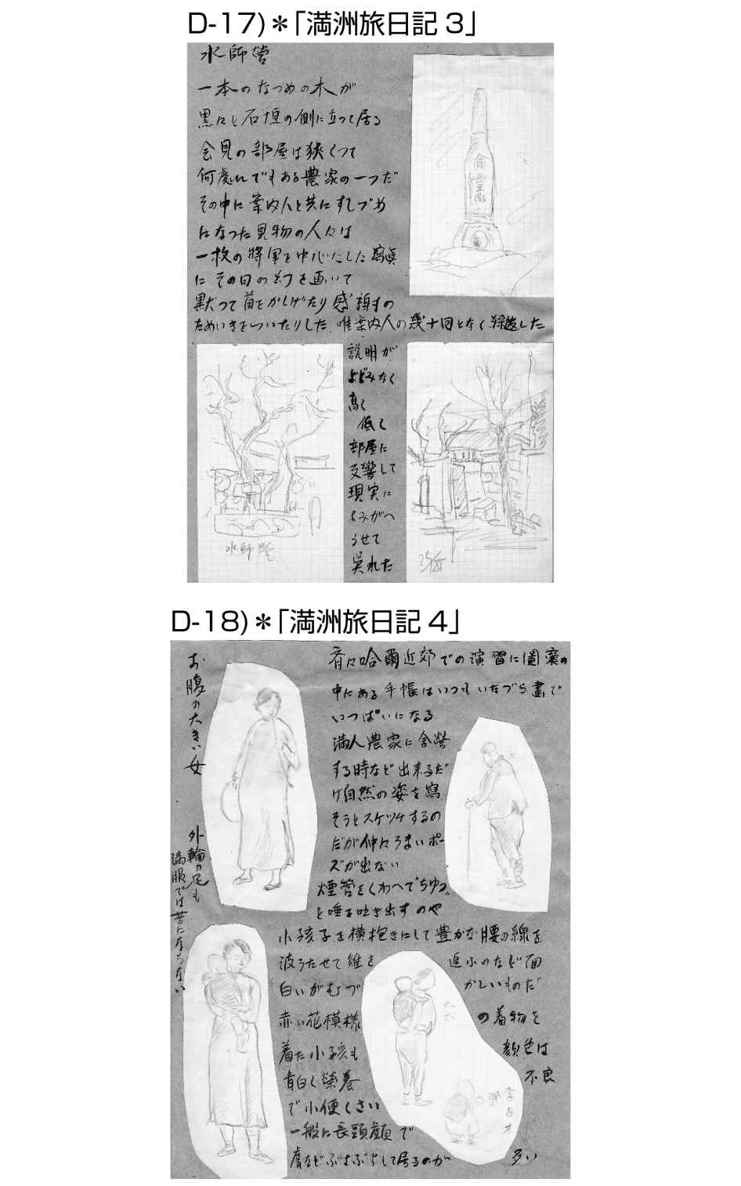 D-17)＊「満洲旅日記3」
水師営
一本のなつめの木が
黒々と石垣の側に立つて居る
会見の部屋は狭くつて
何處にでもある農家の一つだ
その中に案内人と共にすしづめ
になつた見物の人々は
一枚の将軍を中心にした寫真
にその日の幻を画いて
黙つて首をかしげたり感損の
ためいきをついたりした 唯案内人の幾十回となく繰返した
説明が
よどみなく
高く
低く
部屋に
反響して
現実に
よみがへ
らせて
呉れた
水師営
D-18)＊「満洲旅日記4」
お腹の大きい女
外輪の足も
満服では苦にならない
斉々哈爾近郊での演習に圖嚢の
中にある手帳はいつもいたづら書で
いつぱいになる
満人農家に舎営
する時など出来るだ
け自然の姿を寫
そうとスケツチするの
だが仲々うまいポー
ズが出ない
煙管をくわへてちゆつ
と唾を吐き出すのや
小孩子を横抱きにして豊かな腰の線を
波うたせて 追ふのなど面
白いがむづかしいものだ
赤い花模様の着物を
着た小孩も顔色は
青白く栄養不良
で小便くさい
一般に長頭顔で
して居るのが多い